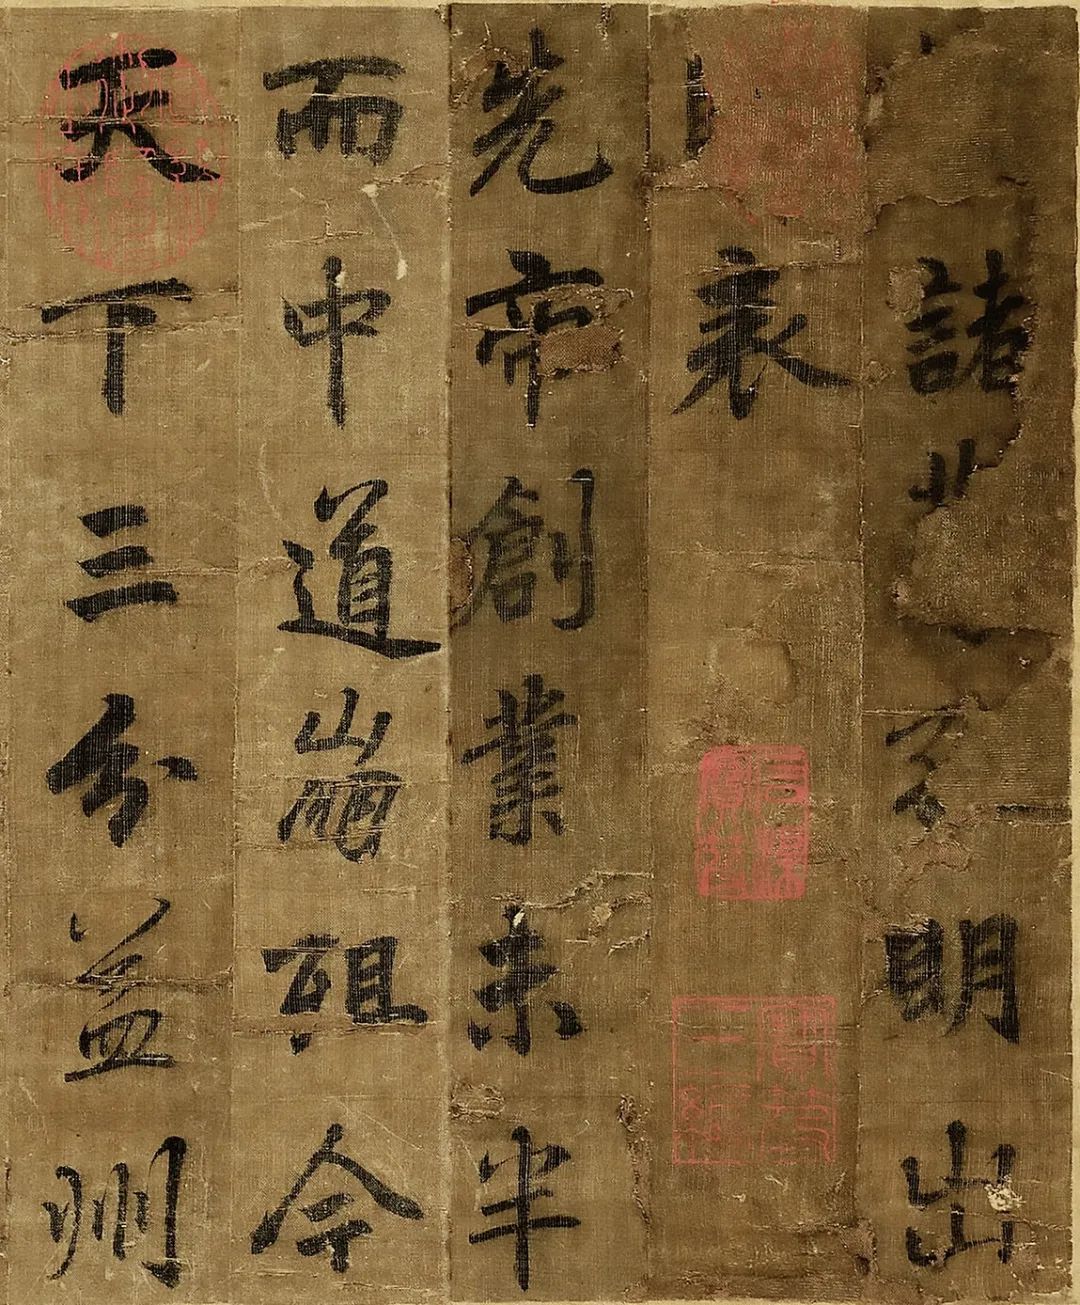 諸明出
表
先帝創業未半
而中道崩殂今
天下三分益州